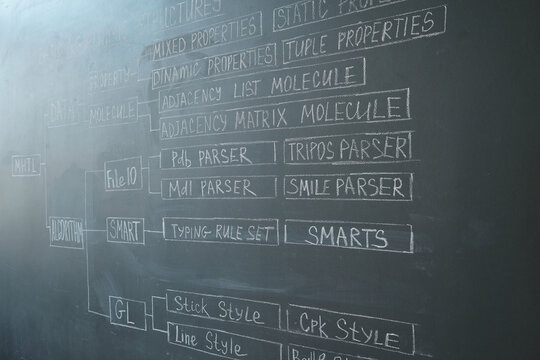 STRUCTURES
STATIC PROPERTIES
MIXED PROPERTIES
TUPLE PROPERTIES
PROPERTY
DINAMIC PROPERTIES
ADJACENCY LIST MOLECULE
MOLECULE
ADJACENCY MATRIX MOLECULE
Pdb PARSER
TRIPOS PARSER
MHTL
File IO
Mdl PARSER
SMILE PARSER
ALGORITHM
SMART
TYPING-RULE SET
SMARTS
GL
Stick Style
Cpk Style
Line Style